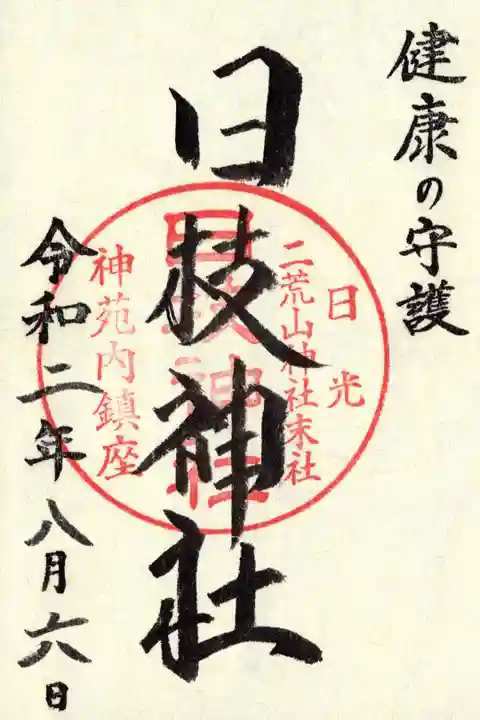 健康の守護
日枝神社
令和二年八月六日
日光
二荒山神社末社
日枝神社
神苑内鎮座